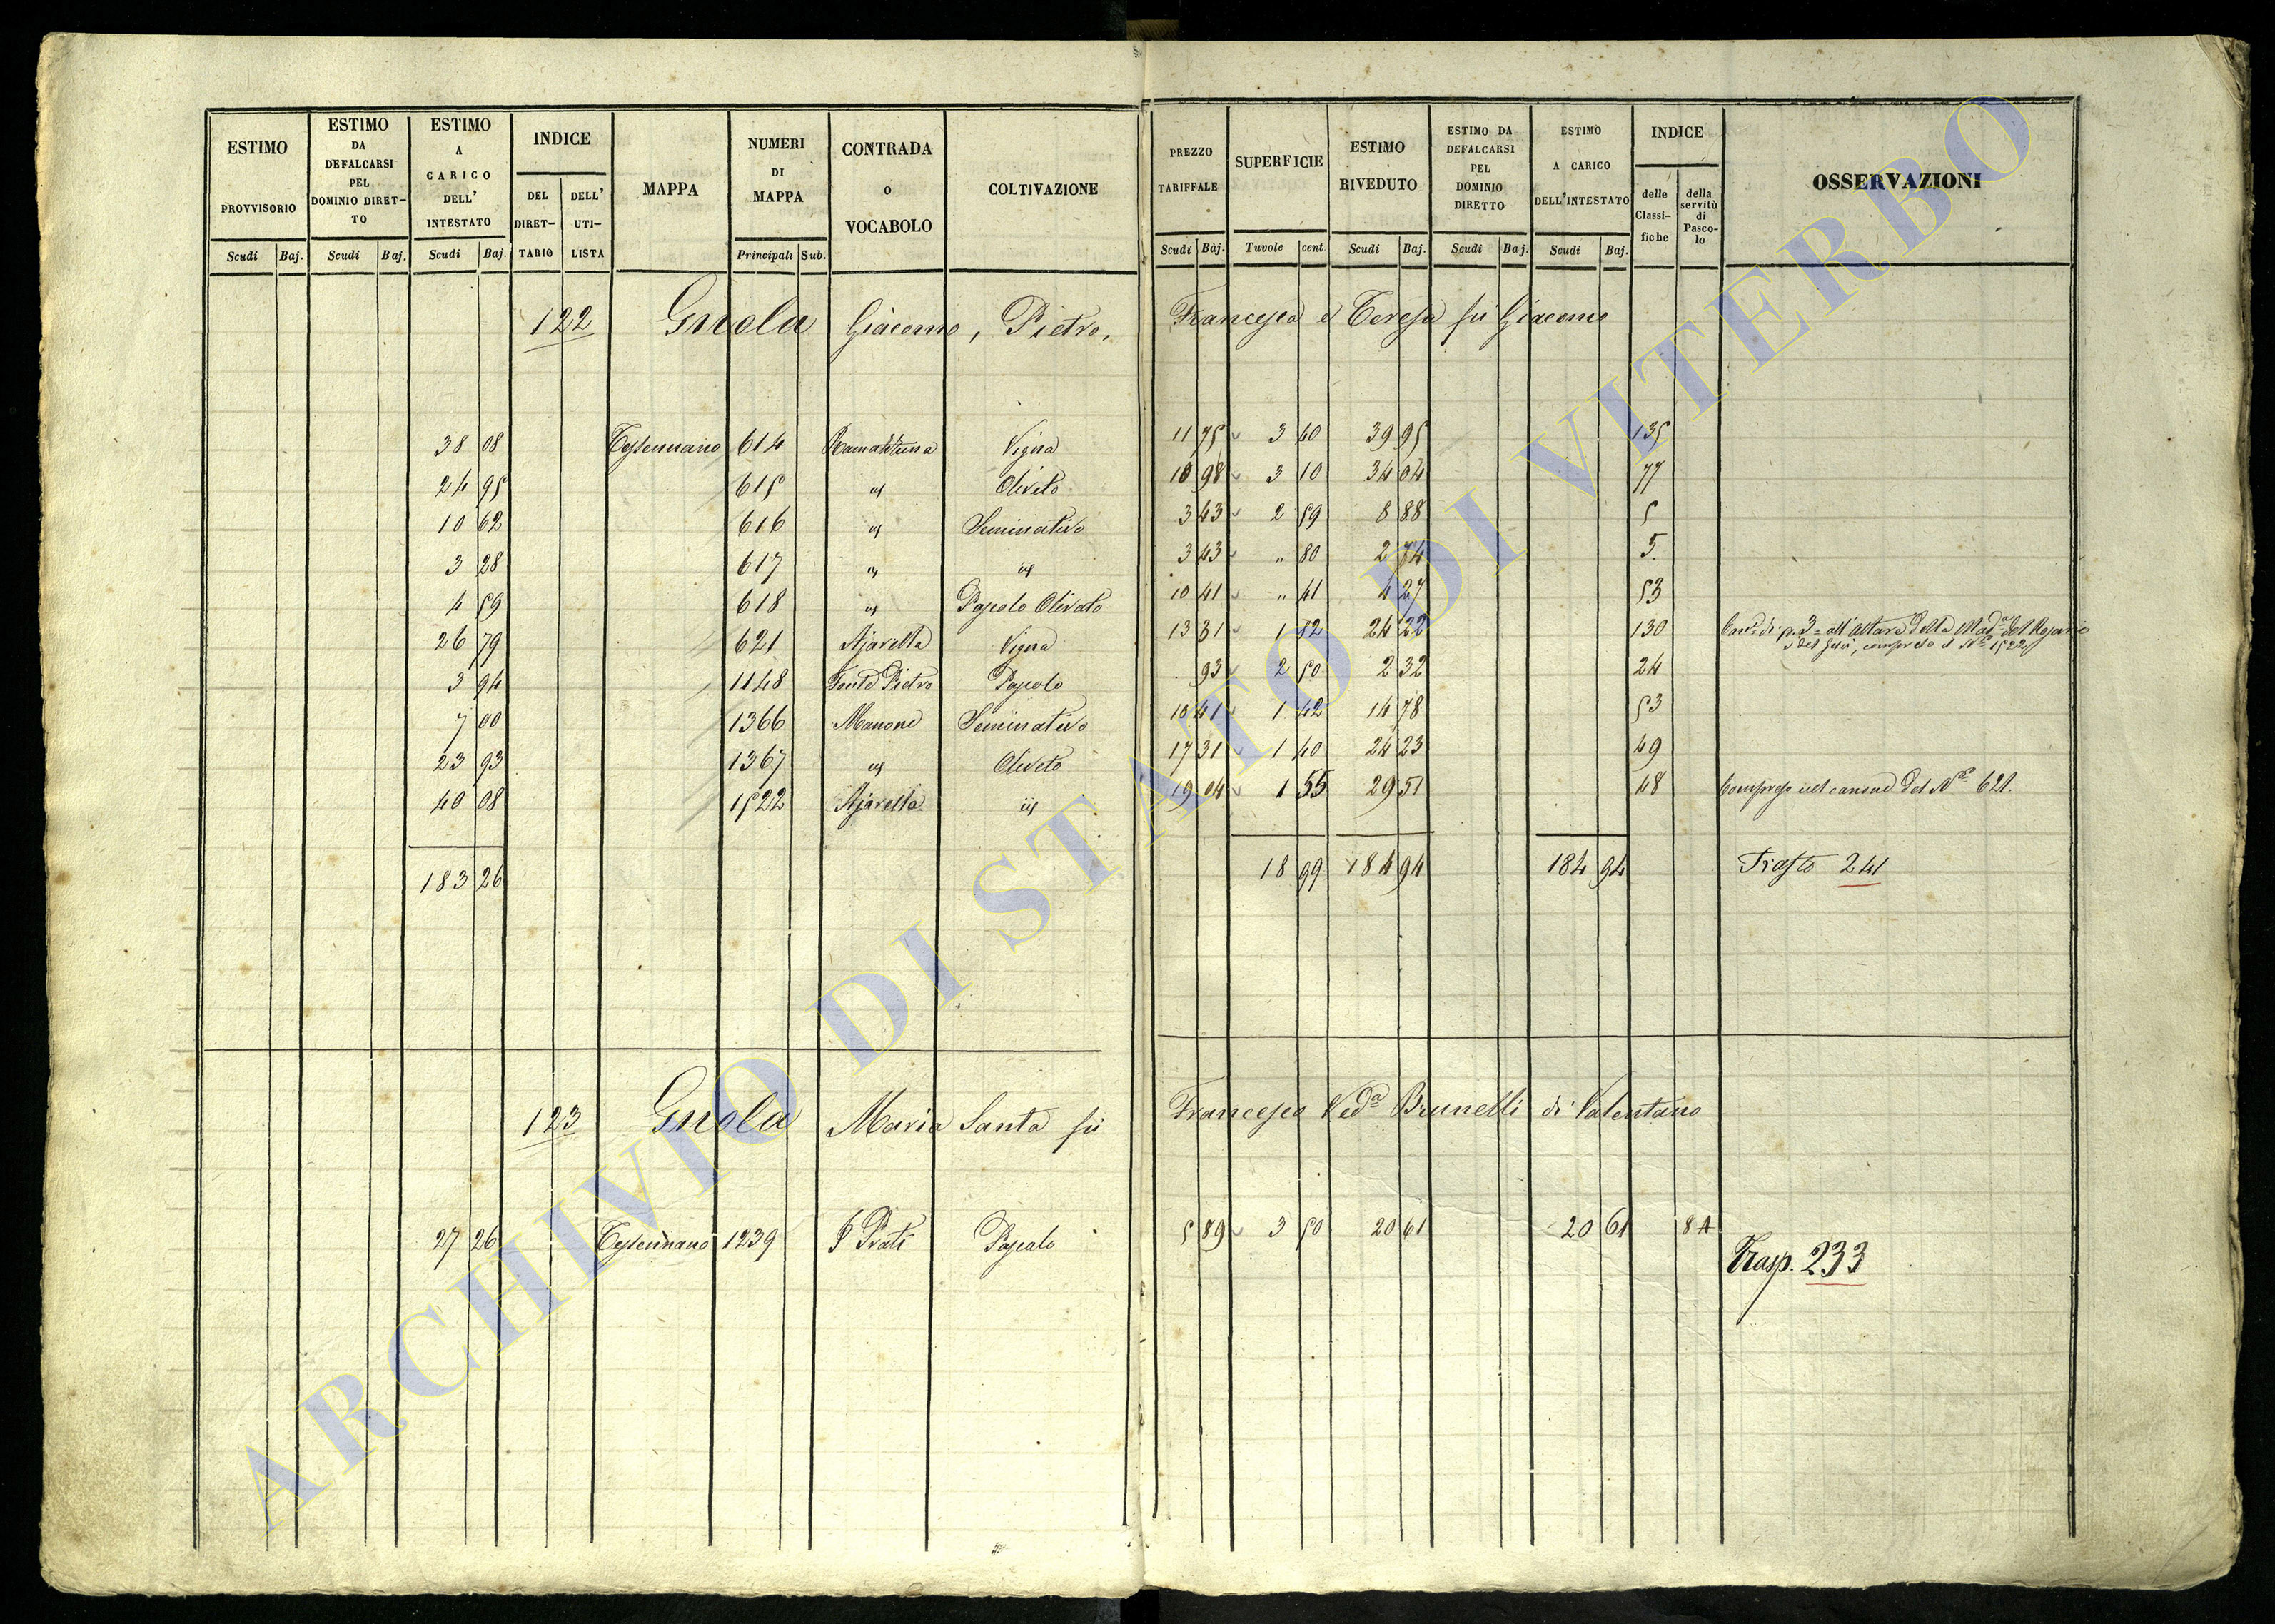 ESTIMO PROVVISORIO Scudi Baj.
ESTIMO DA DEFALCARSI PEL DOMINIO DIRET- TO Scudi Baj.
ESTIMO A CARICO DELL' INTESTATO Scudi Baj.
INDICE DEL DIRET- TARIO DELL' UTI- LISTA
MAPPA
NUMERI DI MAPPA Principali Sub.
CONTRADA o VOCABOLO
COLTIVAZIONE
PREZZO TARIFFALE Scudi Baj.
SUPERFICIE Tavole cent
ESTIMO RIVEDUTO Scudi Baj.
ESTIMO DA DEFALCARSI PEL DOMINIO DIRETTO Scudi Baj.
ESTIMO A CARICO DELL'INTESTATO Scudi Baj.
INDICE delle Classi- fiche della servitù di Pasco- lo
OSSERVAZIONI
122 Gnola Giacomo, Pietro, Francesca e Teresa fu Giacomo
38 08 Tessennano 614 Vigna 11 75 3 40 39 95 135
24 95 615 id Oliveto 10 98 3 10 34 04 77
10 62 616 id Seminativo 3 43 2 59 8 88 5
3 28 617 id id 3 43 " 80 2 74 5
4 59 618 id Pascolo Olivato 10 41 " 41 4 27 53
26 79 621 Ajaretta Vigna 13 31 1 82 24 22 130 all'Altare della Mad.a del Rosario
e del Gesù, compreso il N.o 1522
3 94 1148 Fonte Pietro Pascolo 93 2 50 2 32 24
7 00 1366 Manone Seminativo 10 41 1 42 14 78 53
23 93 1367 id Oliveto 17 31 1 40 24 23 49
40 08 1522 Ajaretta id 19 04 1 55 29 51 48 Compreso nel canone del N.o 621.
183 26 18 99 184 94 184 94 Trasto 241
123 Gnola Maria Santa fu Francesco Ved.a Brunelli di Valentano
27 26 Tessennano 1239 Prati Pascolo 5 89 3 50 20 61 20 61 84
Trasp. 233
ARCHIVIO DI STATO DI VITERBO